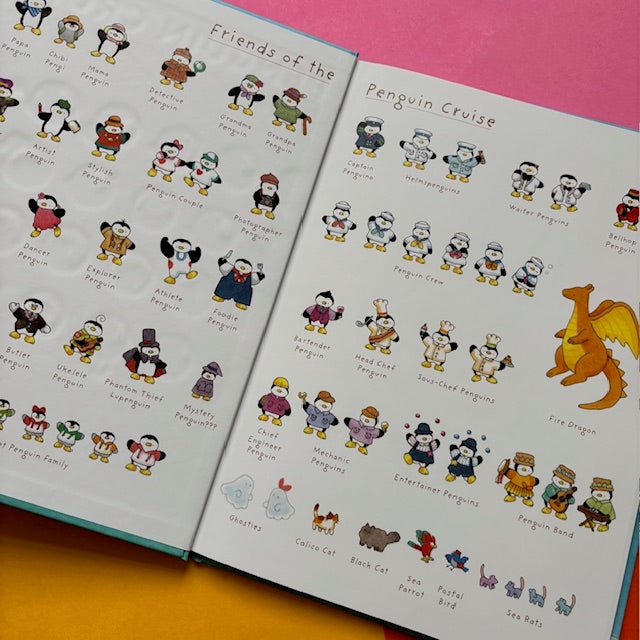 Friends of the
Papa
Penguin
Chibi
Pengi
Mama
Penguin
Detective
Penguin
Grandma
Penguin
Grandpa
Penguin
Artist
Penguin
Stylish
Penguin
Penguin Couple
Photographer
Penguin
Dancer
Penguin
Explorer
Penguin
Athlete
Penguin
Foodie
Penguin
Butler
Penguin
Ukelele
Penguin
Phantom Thief
Lupenguin
Mystery
Penguin???
Penguin Family
Penguin Cruise
Captain
Penguino
Helmspenguins
Waiter Penguins
Bellhop
Penguin
Penguin Crew
Bartender
Penguin
Head Chef
Penguin
Sous-Chef Penguins
Fire Dragon
Chief
Engineer
Penguin
Mechanic
Penguins
Entertainer Penguins
Penguin Band
Ghosties
Calico Cat
Black Cat
Sea
Parrot
Postal
Bird
Sea Rats